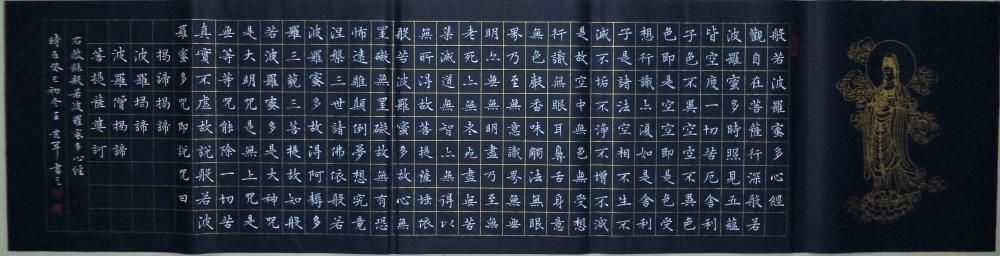 般若波羅蜜多心經
觀自在菩薩行深般若
波羅蜜多時照見五蘊
皆空度一切苦厄舍利
子色不異空空不異色
色即是空空即是色受
想行識亦復如是舍利
子是諸法空相不生不
滅不垢不淨不增不減
是故空中無色無受想
行識無眼耳鼻舌身意
無色聲香味觸法無眼
界乃至無意識界無無
明亦無無明盡乃至無
老死亦無老死盡無苦
集滅道無智亦無得以
無所得故菩提薩埵依
般若波羅蜜多故心無
罣礙無罣礙故無有恐
怖遠離顛倒夢想究竟
涅槃三世諸佛依般若
波羅蜜多故得阿耨多
羅三藐三菩提故知般
若波羅蜜多是大神咒
是大明咒是無上咒是
無等等咒能除一切苦
真實不虛故說般若波
羅蜜多咒即說咒曰
揭諦揭諦
波羅揭諦
波羅僧揭諦
菩提薩摩訶
右敬錄般若波羅蜜多心經
時在癸巳初冬王書之